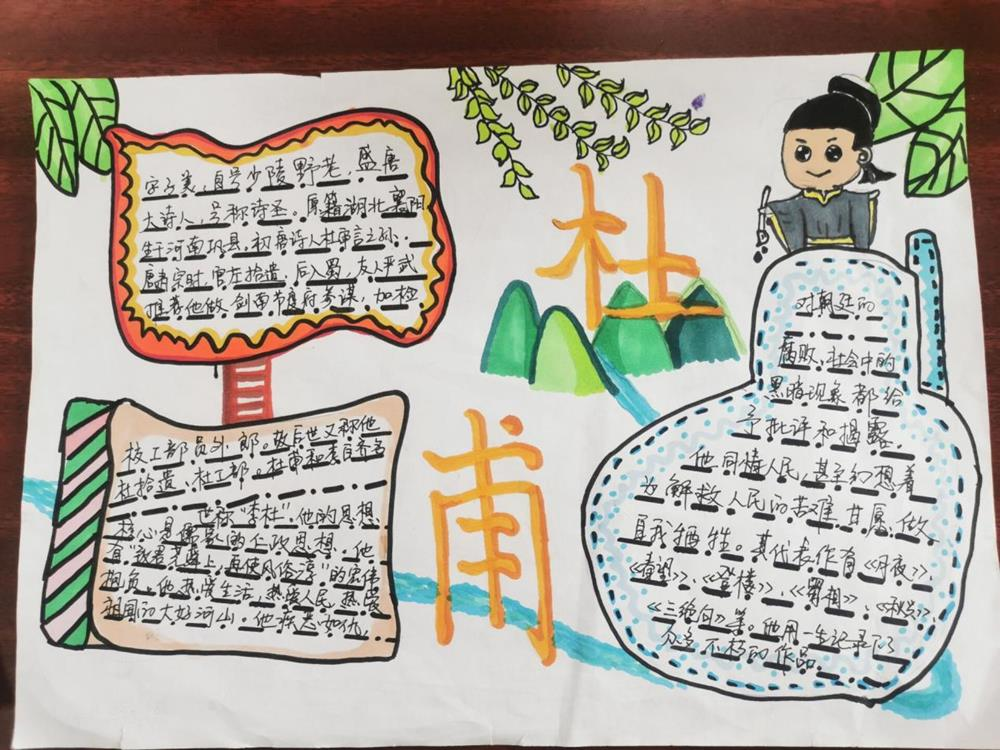 杜
甫
字子美，自号少陵野老，盛唐
大诗人，号称诗圣。原籍湖北襄阳
生于河南巩县，初唐诗人杜审言之孙。
肃宗时，官左拾遗，后入蜀，友人严武
推荐他做剑南节度府参谋，加检
校工部员外郎。故后世又称他
杜拾遗、杜工部。杜甫和李白齐名
世称“李杜”，他的思想
核心是儒家的仁政思想，他
有“致君尧舜上，再使风俗淳”的宏伟
抱负，他热爱生活，热爱人民，热爱
祖国的大好河山。他疾恶如仇，
对朝廷的
腐败、社会中的
黑暗现象都给
予批评和揭露。
他同情人民，甚至幻想着
为解救人民的苦难甘愿做
自我牺牲。其代表作有《月夜》、
《春望》、《登楼》、《蜀相》、《秋兴》、
《三绝句》等。他用一生记录下了
众多不朽的作品。